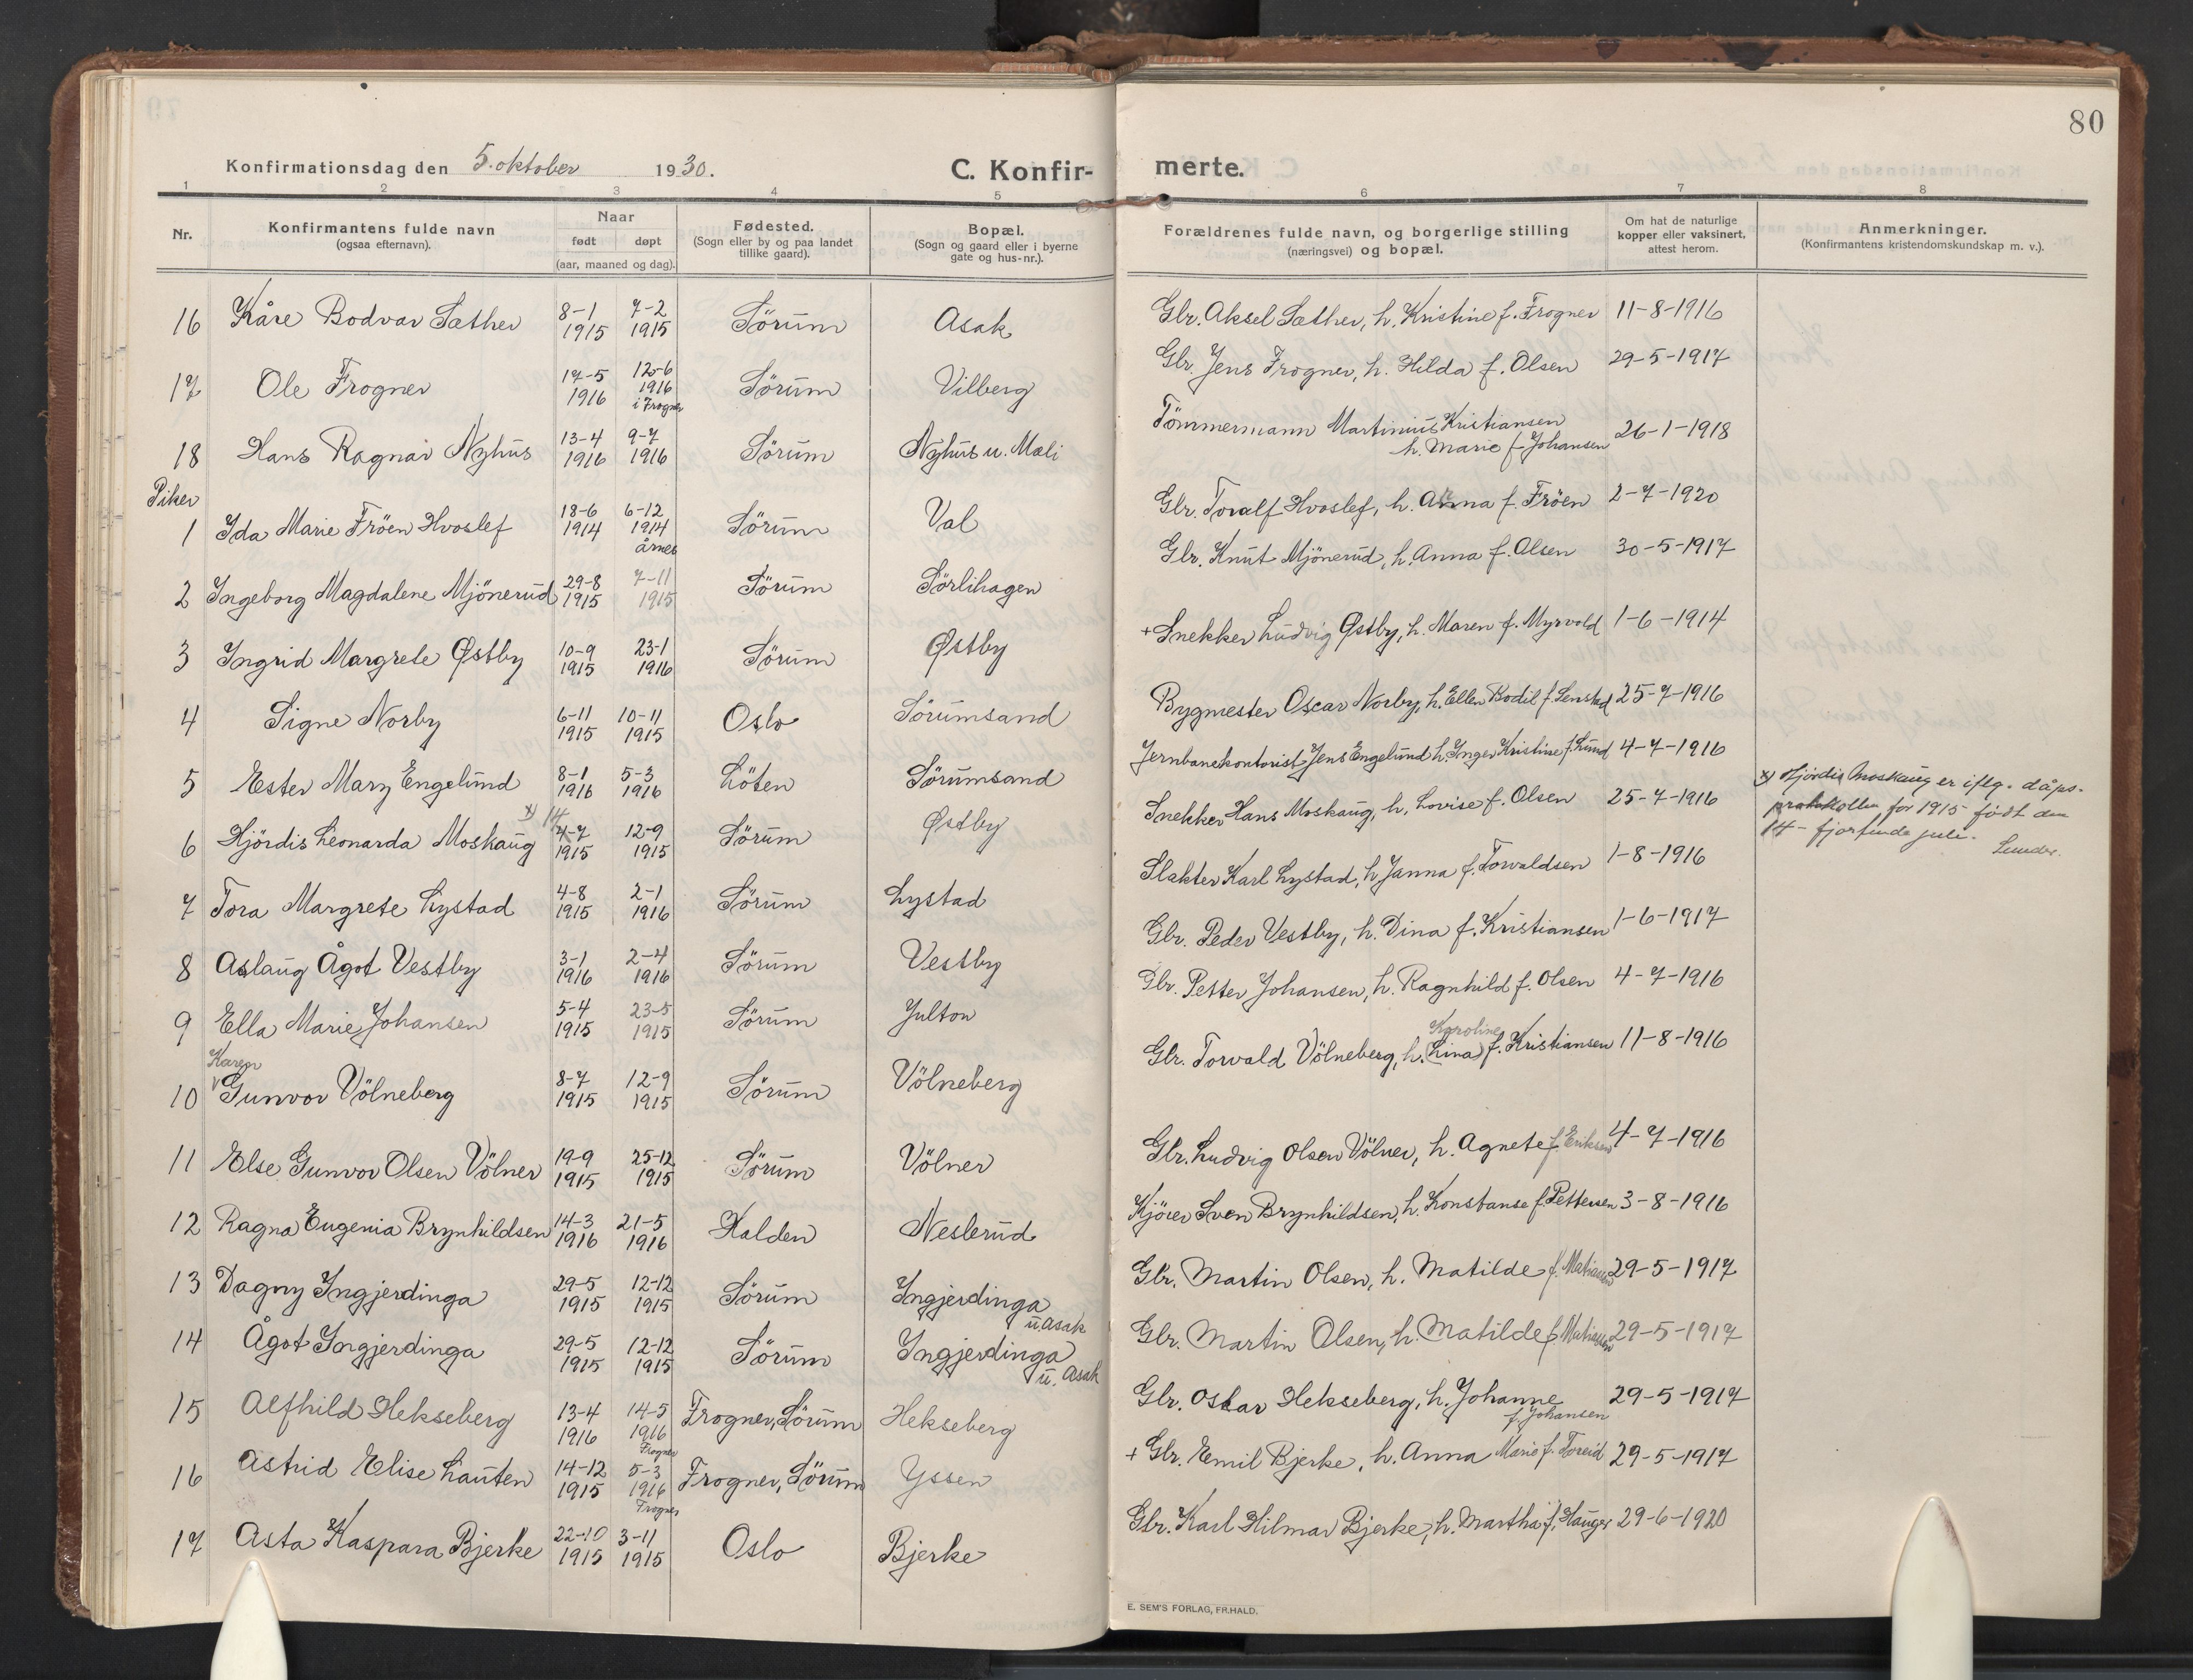 80
Konfirmationsdag den 5. oktober 1930. C. Konfir- merte.
1 2 3 4 5 6 7 8
Nr. Konfirmantens fulde navn (ogsaa efternavn). Naar født døpt (aar, maaned og dag). Fødested. (Sogn eller by og paa landet tillike gaard). Bopæl. (Sogn og gaard eller i byerne gate og hus-nr.). Forældrenes fulde navn, og borgerlige stilling (næringsvei) og bopæl. Om hat de naturlige kopper eller vaksinert, attest herom. Anmerkninger. (Konfirmantens kristendomskundskap m. v.).
16 Kåre Bodvar Sæther 8-1 1915 7-2 1915 Sörum Asak Gbr. Aksel Sæther, h. Kristine f. Frogner 11-8-1916
17 Ole Frogner 17-5 1916 12-6 1916 i Frogner Sörum Vilberg Gbr. Jens Frogner, h. Hilda f. Olsen 29-5-1917
18 Hans Ragnar Nyhus 13-4 1916 9-7 1916 Sörum Nyhus u. Mæli Tömmermann Martinius Kristiansen h. Marie f. Johansen 26-1-1918
Piker
1 Ida Marie Fröen Hvoslef 18-6 1914 6-12 1914 årnes Sörum Val Gbr. Toralf Hvoslef, h. Anna f. Fröen 2-7-1920
2 Ingeborg Magdalene Mjönerud 29-8 1915 7-11 1915 Sörum Sörlihagen Gbr. Knut Mjönerud, h. Anna f. Olsen 30-5-1917
3 Ingrid Margrete Østby 10-9 1915 23-1 1916 Sörum Østby + Snekker Ludvig Østby, h. Maren f. Myrvold 1-6-1914
4 Signe Norby 6-11 1915 10-11 1915 Oslo Sörumsand Bygmester Oscar Norby, h. Ellen Bodil f. Senstad 25-7-1916
5 Ester Mary Engelund 8-1 1916 5-3 1916 Löten Sörumsand Jernbanekontorist Jens Engelund h. Inger Kristine f. Lund 4-7-1916
6 Hjördis Leonarda Moskaug x) 14 4-7 1915 12-9 1915 Sörum Østby Snekker Hans Moskaug, h. Lovise f. Olsen 25-7-1916
x) Hjördis Moskaug er iflg. dåps-
protokollen for 1915 född den
14 - fjortende juli.
7 Tora Margrete Lystad 4-8 1915 2-1 1916 Sörum Lystad Slakter Karl Lystad, h. Janna f. Torvaldsen 1-8-1916
8 Aslaug Ågot Vestby 3-1 1916 2-4 1916 Sörum Vestby Gbr. Peder Vestby, h. Dina f. Kristiansen 1-6-1917
9 Ella Marie Johansen 5-4 1915 23-5 1915 Sörum Julton Gbr. Petter Johansen, h. Ragnhild f. Olsen 4-7-1916
10 Karen Gunvor Völneberg 8-7 1915 12-9 1915 Sörum Völneberg Gbr. Torvald Völneberg, h. Karoline (Lina) f. Kristiansen 11-8-1916
11 Else Gunvor Olsen Völner 19-9 1915 25-12 1915 Sörum Völner Gbr. Ludvig Olsen Völner, h. Agnete f. Eriksen 4-7-1916
12 Ragna Eugenia Brynhildsen 14-3 1916 21-5 1916 Halden Neslerud Kjörer Sven Brynhildsen, h. Konstanse f. Pettersen 3-8-1916
13 Dagny Ingjerdinga 29-5 1915 12-12 1915 Sörum Ingjerdinga u. Asak Gbr. Martin Olsen, h. Matilde f. Matiasen 29-5-1917
14 Ågot Ingjerdinga 29-5 1915 12-12 1915 Sörum Ingjerdinga u. Asak Gbr. Martin Olsen, h. Matilde f. Matiasen 29-5-1917
15 Alfhild Hekseberg 13-4 1916 14-5 1916 Frogner Frogner, Sörum Hekseberg Gbr. Oskar Hekseberg, h. Johanne f. Johansen 29-5-1917
16 Astrid Elise Lauten 14-12 1915 5-3 1916 Frogner Frogner, Sörum Yssen + Gbr. Emil Bjerke, h. Anna Marie f. Toreid 29-5-1917
17 Asta Kaspara Bjerke 22-10 1915 3-11 1915 Oslo Bjerke Gbr. Karl Hilmar Bjerke, h. Martha f. Hauger 29-6-1920
E. SEM'S FORLAG, FR.HALD.